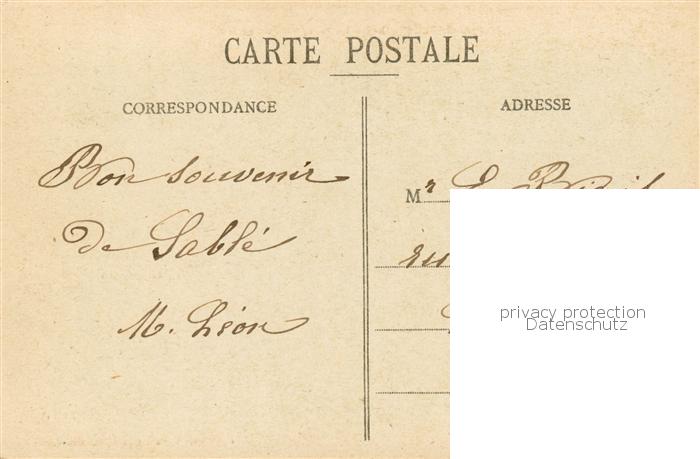 CARTE POSTALE
CORRESPONDANCE
ADRESSE
Bon souvenir
de Sablé
M. Léon
Mr
privacy protection
Datenschutz